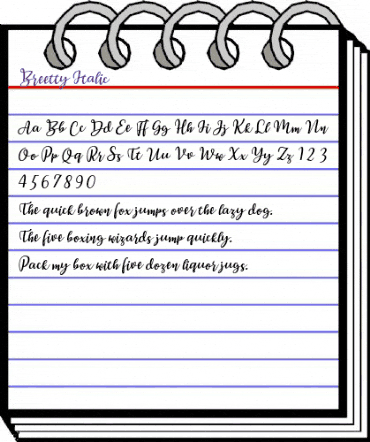 Breetty Italic
Aa Bb Cc Dd Ee Ff Gg Hh Ii Jj Kk Ll Mm Nn
Oo Pp Qq Rr Ss Tt Uu Vv Ww Xx Yy Zz 1 2 3
4 5 6 7 8 9 0
The quick brown fox jumps over the lazy dog.
The five boxing wizards jump quickly.
Pack my box with five dozen liquor jugs.